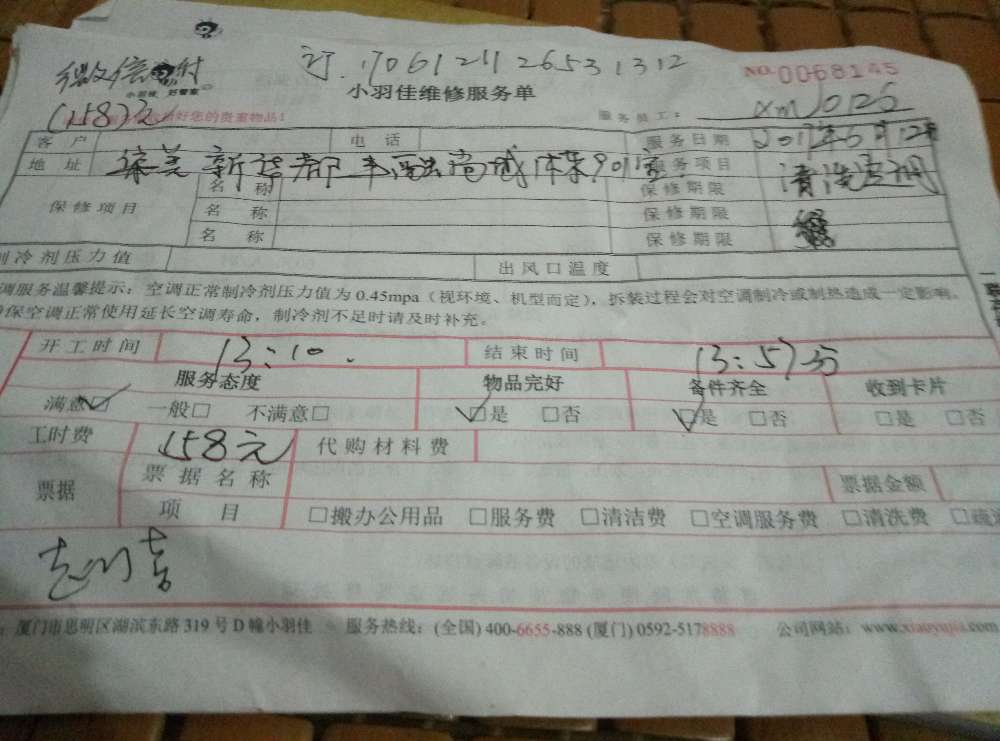 微信 付
订.1706121126531312
NO.0068145
小羽佳 好管家
小羽佳维修服务单
(158)元
好您的贵重物品!
服务员工: xm0125
客户 电话 服务日期 2017年6月12
地址 集美新 都 9011室 服务项目 清洗空调
保修项目 名称 保修期限
名称 保修期限
名称 保修期限
制冷剂压力值 出风口温度
调服务温馨提示:空调正常制冷剂压力值为0.45mpa(视环境、机型而定),拆装过程会对空调制冷或制热造成一定影响。
保空调正常使用延长空调寿命,制冷剂不足时请及时补充。
开工时间 13:10. 结束时间 13:57分
服务态度 物品完好 备件齐全 收到卡片
满意☑ 一般□ 不满意□ ☑是 □否 ☑是 □否 □是 □否
工时费 158元 代购材料费
票据 票据名称 票据金额
项目 □搬办公用品 □服务费 □清洁费 □空调服务费 □清洗费 □疏
:厦门市思明区湖滨东路319号D幢小羽佳 服务热线:(全国)400-6655-888(厦门)0592-5178888 公司网站:www.xiaoyujia.com